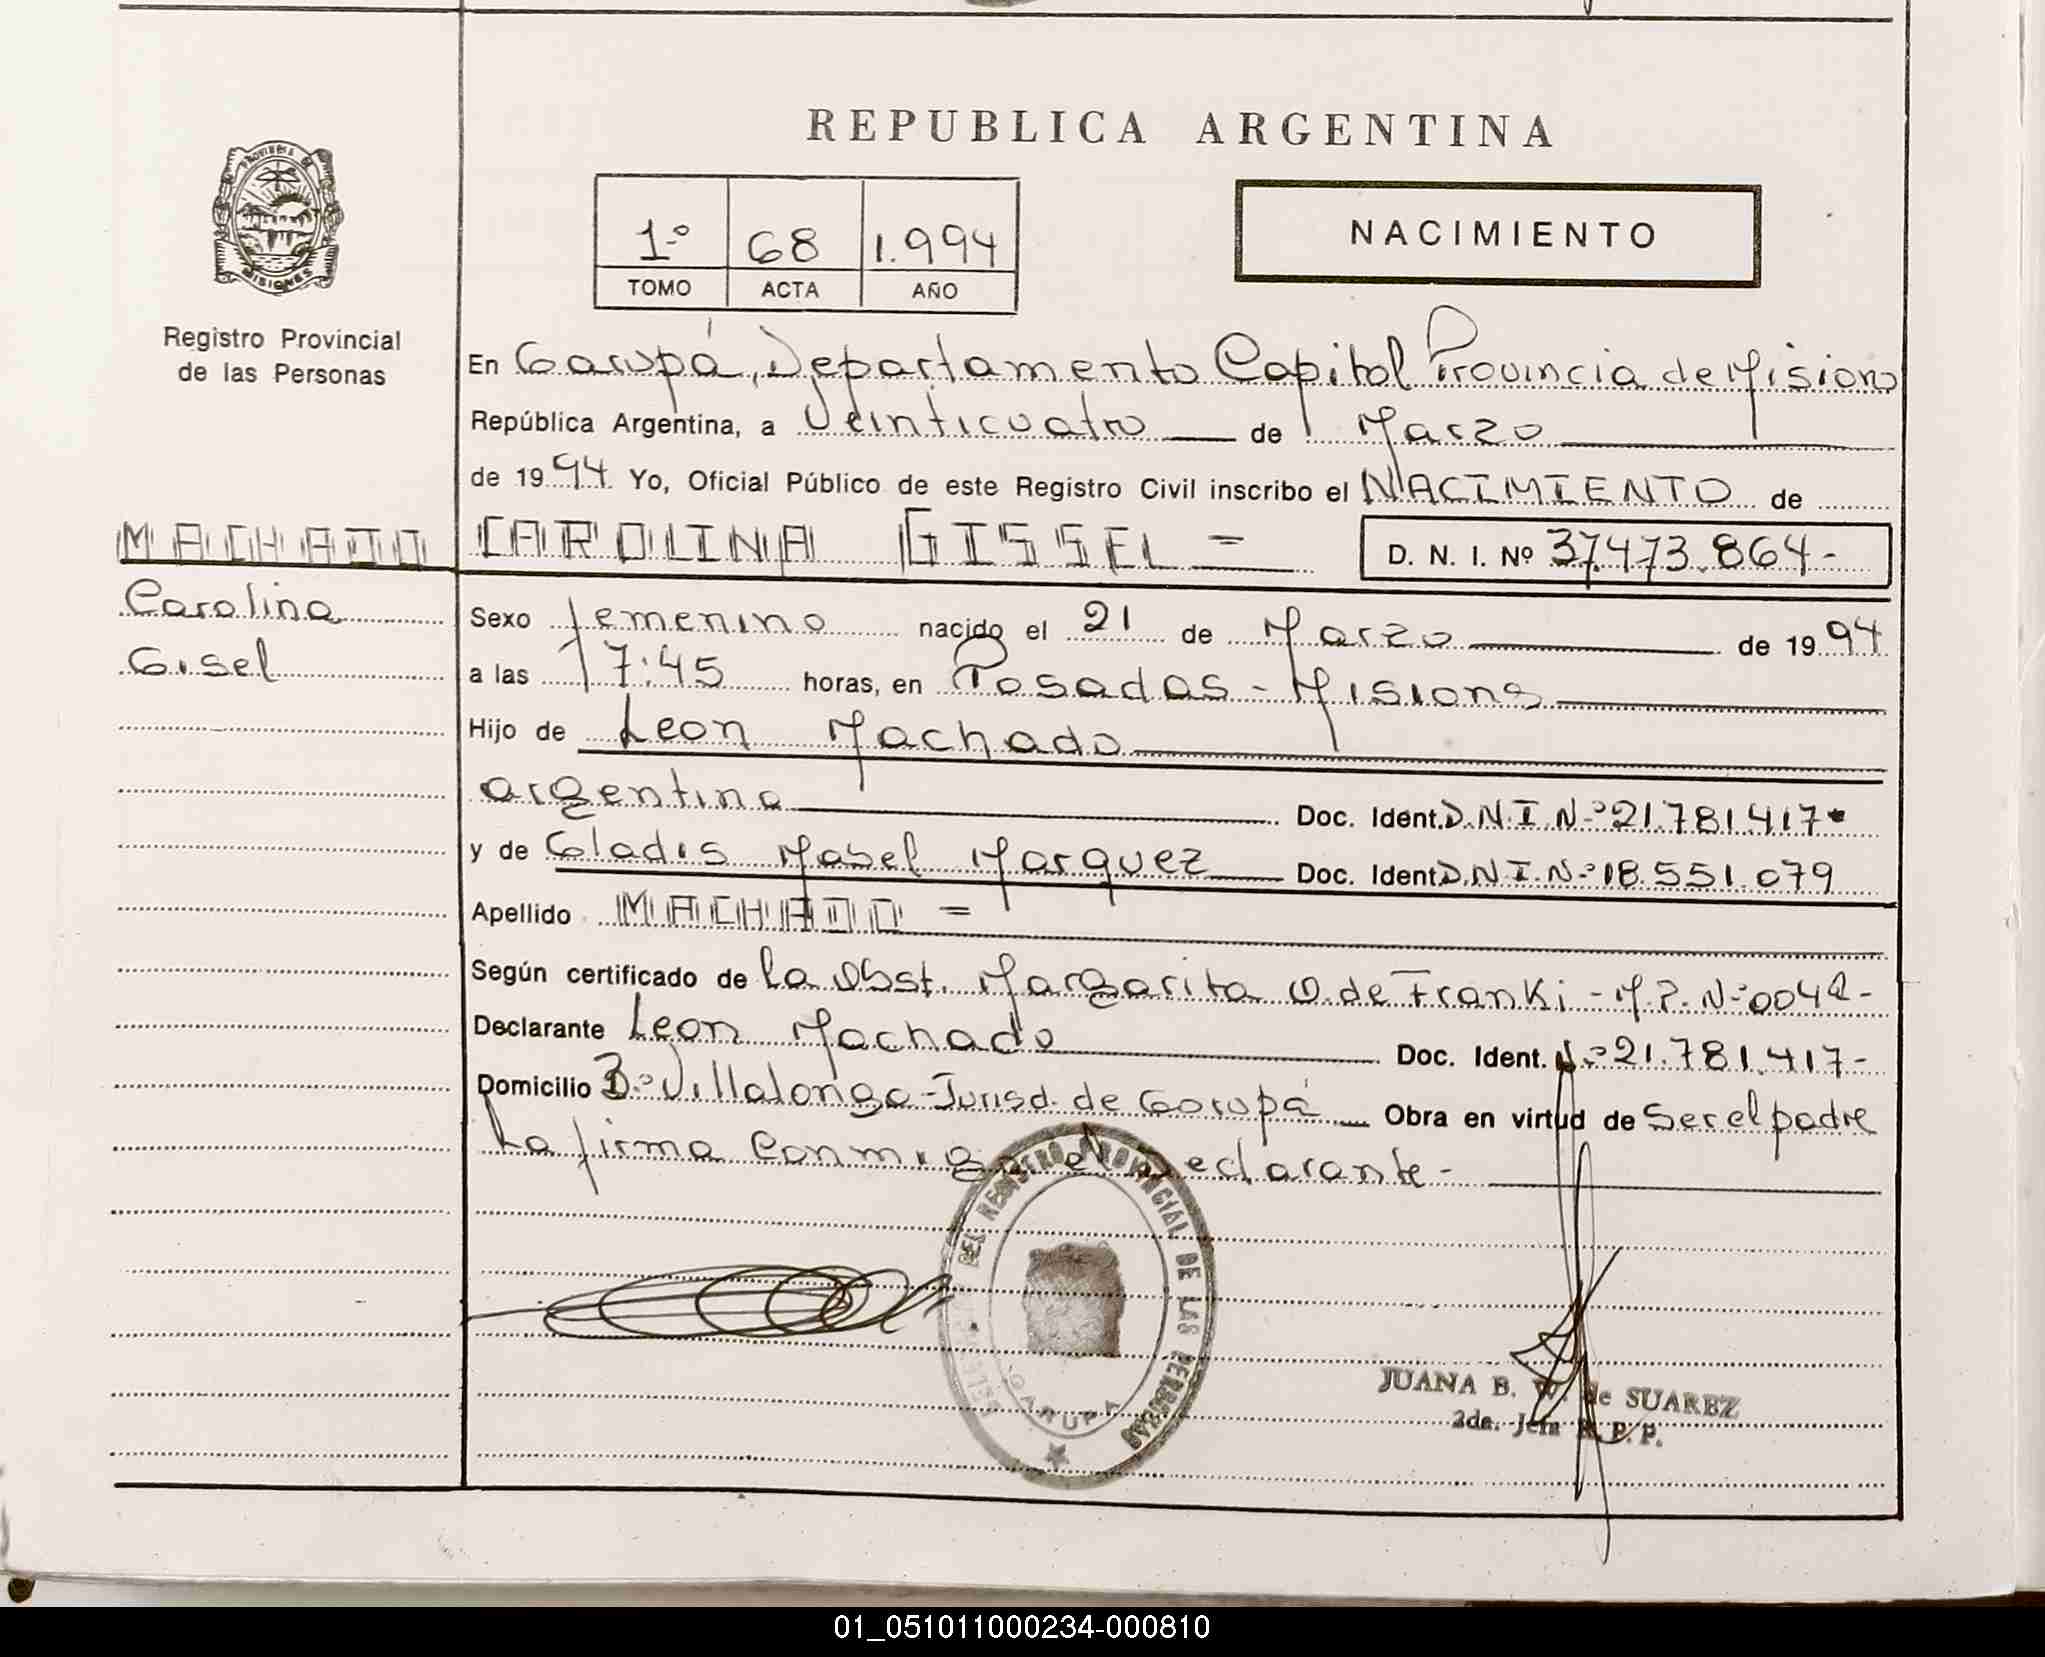 REPUBLICA ARGENTINA
PROVINCIA DE
MISIONES
Registro Provincial
de las Personas
1º 68 1.994
TOMO ACTA AÑO
NACIMIENTO
En Garupá, Departamento Capital Provincia de Misions
República Argentina, a Veinticuatro de Marzo
de 1994 Yo, Oficial Público de este Registro Civil inscribo el NACIMIENTO de
MACHADO CAROLINA GISSEL = D. N. I. Nº 37.473.864-
Carolina
Gisel
Sexo femenino nacido el 21 de Marzo de 1994
a las 17:45 horas, en Posadas - Misions
Hijo de Leon Machado
argentina Doc. Ident. D.N.I.Nº 21.781.417-
y de Gladis Mabel Marquez Doc. Ident. D.N.I.Nº 18.551.079
Apellido MACHADO =
Según certificado de la Obst. Margarita O. de Franki - M.P. Nº 0042-
Declarante Leon Machado Doc. Ident. Nº 21.781.417-
Domicilio Bº Villalonga - Jurisd. de Garupá Obra en virtud de Ser el padre
La firma Conmigo el Declarante -
DEL REGISTRO PROVINCIAL DE LAS PERSONAS
GARUPA
JUANA B. W. de SUAREZ
2da. Jefa R. P. P.
01_051011000234-000810